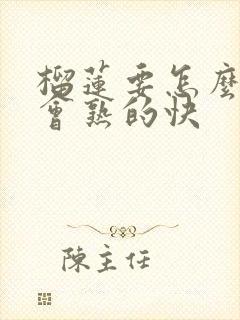 榴蓮要怎麼
會熟的快
陳主任